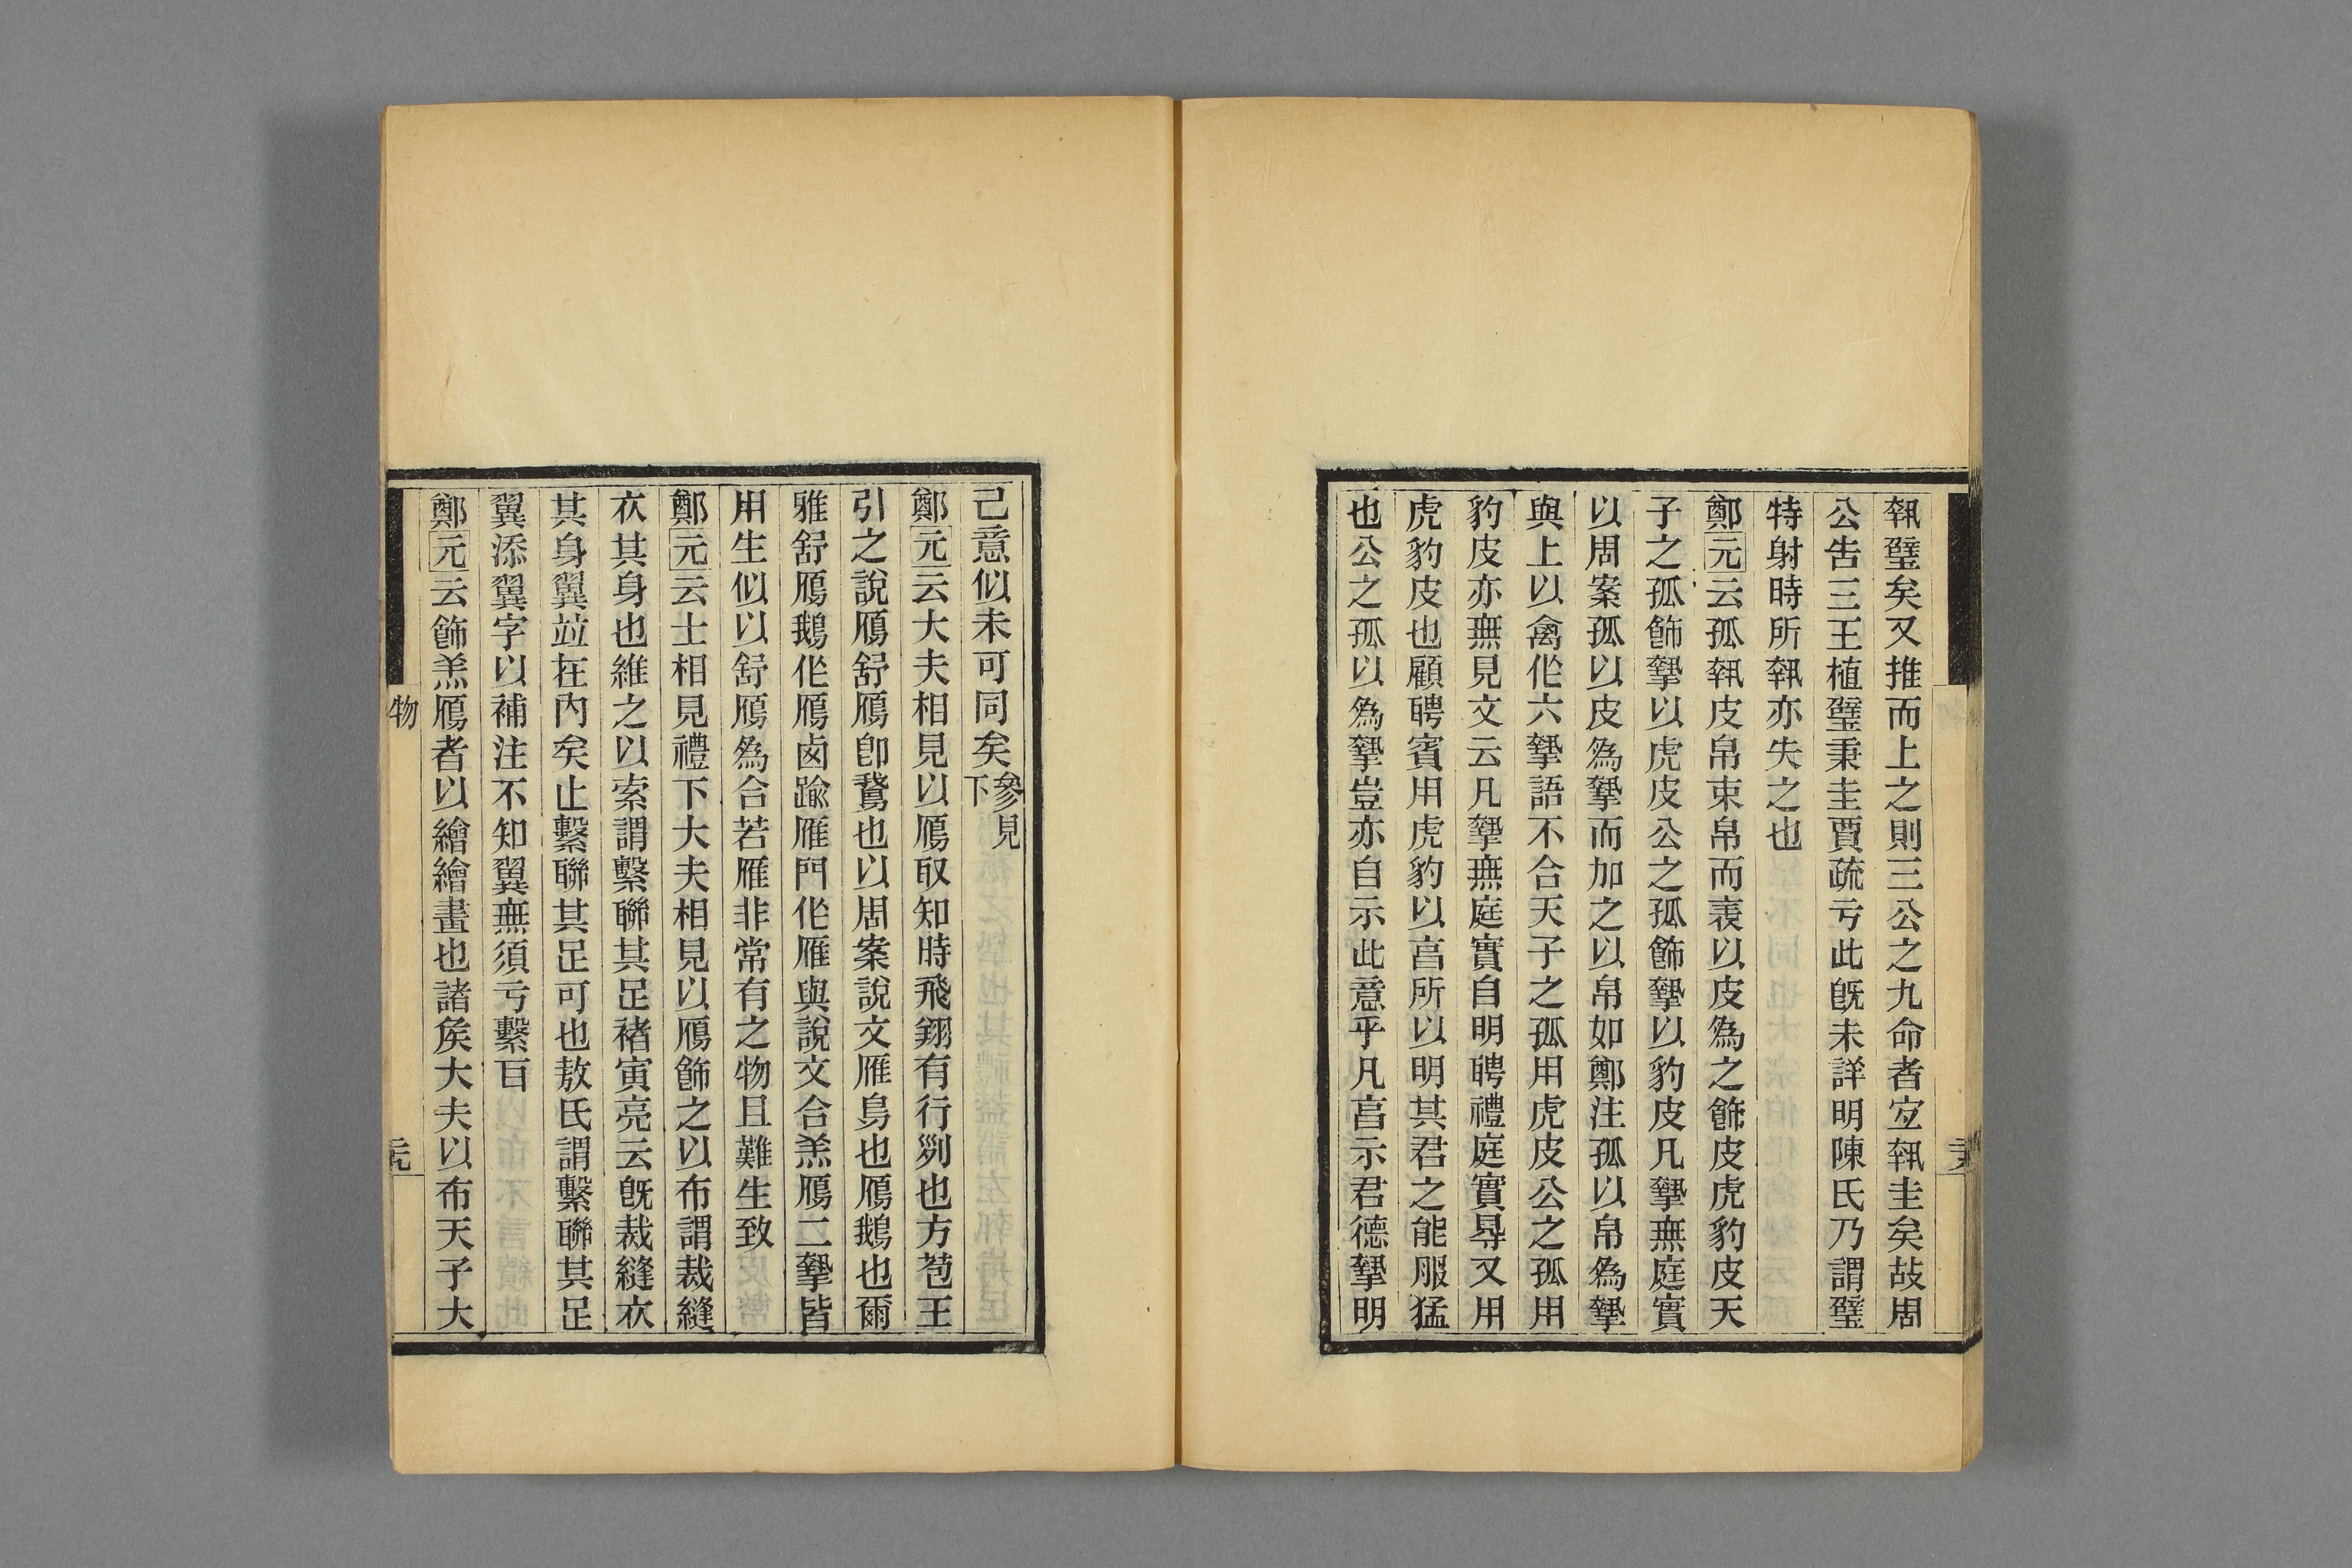 執璧矣又推而上之則三公之九命者宐執圭矣故周
公告三王植璧秉圭賈疏亏此旣未詳明陳氏乃謂璧
特射時所執亦失之也
鄭元云孤執皮帛束帛而表以皮為之飾皮虎豹皮天
子之孤飾摯以虎皮公之孤飾摯以豹皮凡摯無庭實
以周案孤以皮為摯而加之以帛如鄭注孤以帛為摯
與上以禽作六摯語不合天子之孤用虎皮公之孤用
豹皮亦無見文云凡摯無庭實自明聘禮庭實㝵又用
虎豹皮也顧聘賓用虎豹以亯所以明其君之能服猛
也公之孤以為摯豈亦自示此意乎凡亯示君德摯明
己意似未可同矣參見下
鄭元云大夫相見以鴈取知時飛翔有行列也方苞王
引之說鴈舒鴈卽鵞也以周案說文雁鳥也鴈鵝也爾
雅舒鴈鵝作鴈鹵踰雁門作雁與說文合羔鴈二摯皆
用生似以舒鴈為合若雁非常有之物且難生致
鄭元云士相見禮下大夫相見以鴈飾之以布謂裁縫
衣其身也維之以索謂繫聯其足褚寅亮云旣裁縫衣
其身翼竝在內矣止繫聯其足可也敖氏謂繫聯其足
翼添翼字以補注不知翼無須亏繫𦣻
鄭元云飾羔鴈者以繪繪畫也諸矦大夫以布天子大
物
元